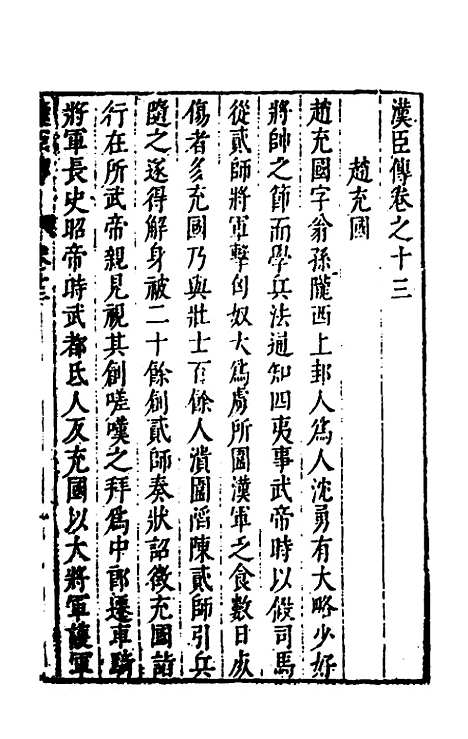 漢臣傳卷之十三
趙充國
趙充國字翁孫隴西上邽人為人沈勇有大略少好
將帥之節而學兵法通知四夷事武帝時以假司馬
從貳師將軍擊匈奴大為虜所圍漢軍乏食數日死
傷者多充國乃與壯士百餘人潰圍陷陳貳師引兵
隨之遂得解身被二十餘創貳師奏狀詔徵充國詣
行在所武帝親見視其創嗟嘆之拜為中郎遷車騎
將軍長史昭帝時武都氐人反充國以大將軍護軍